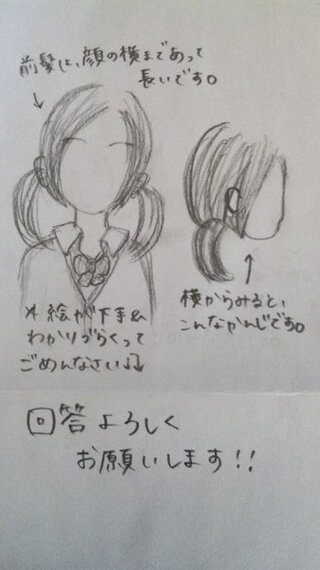 前髪は、顔の横まであって
長いです。
横からみると、
こんなかんじです。
*絵が下手でわかりづらくって
ごめんなさい↓↓
回答よろしく
お願いします!!